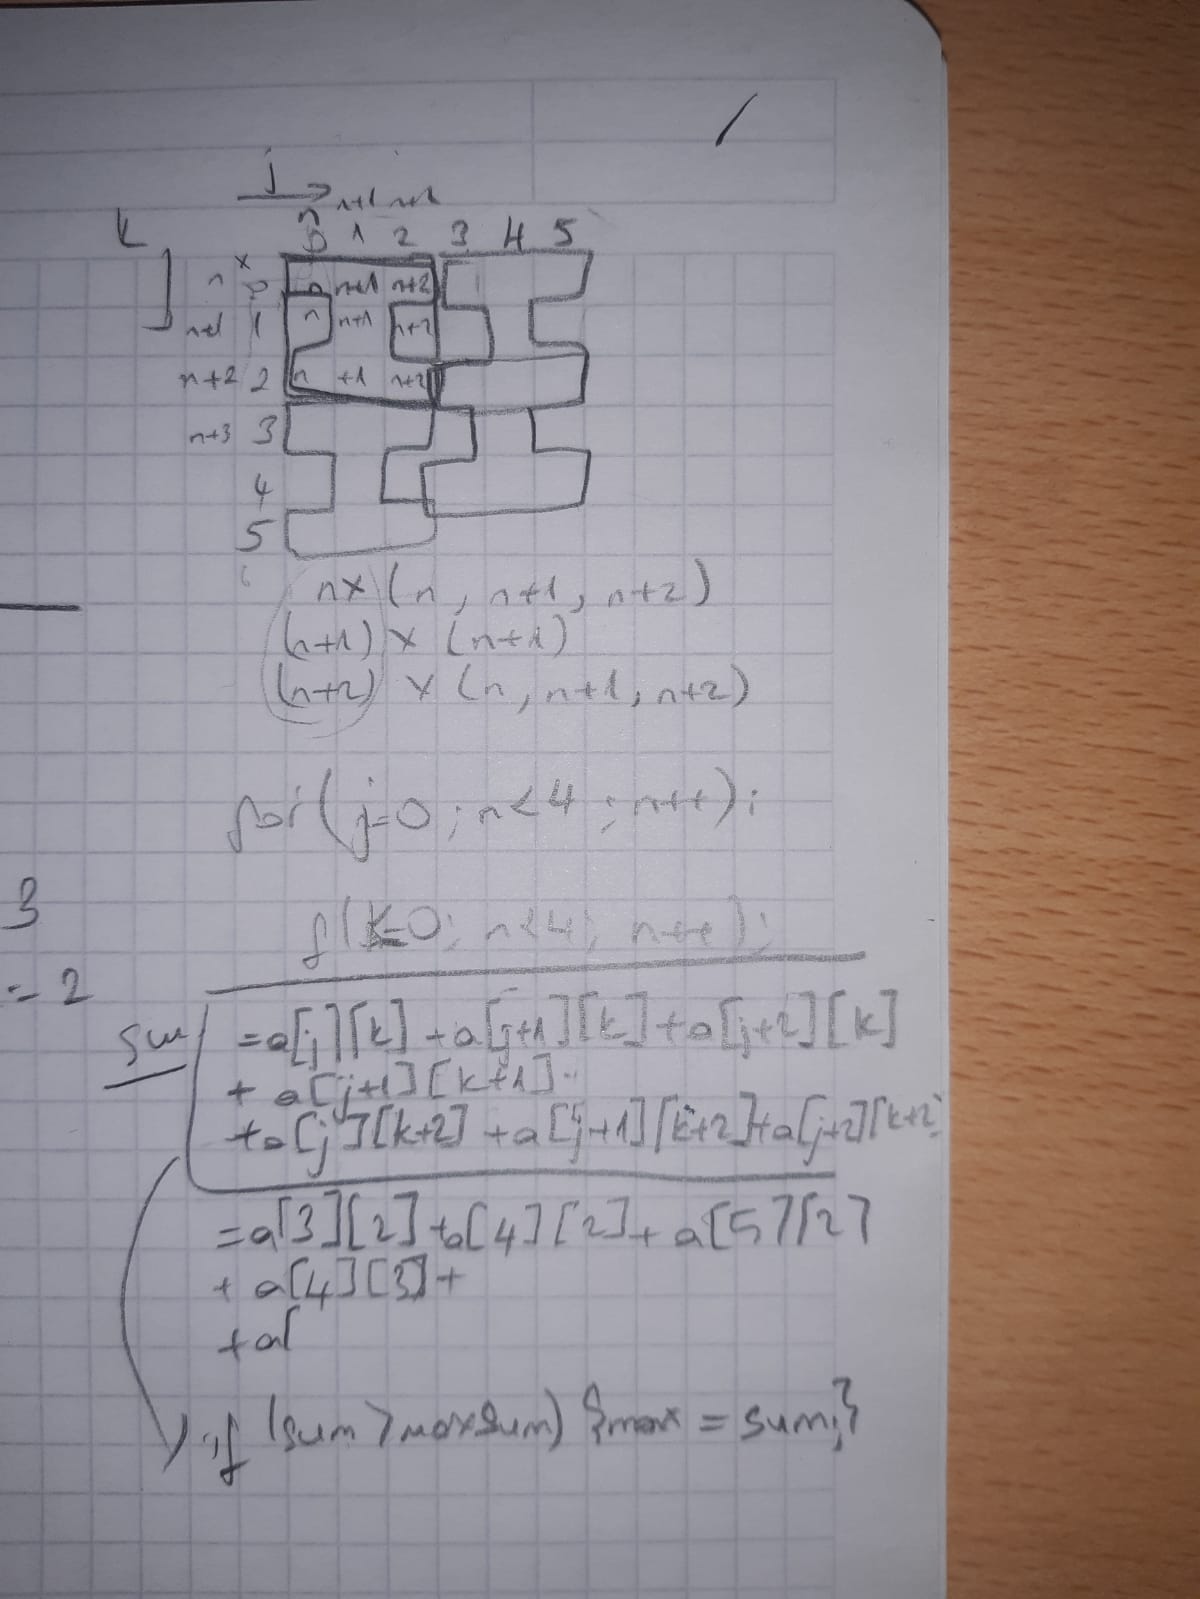 j
n+1 n+2
k n 0 1 2 3 4 5
n x 0 n n+1 n+2
n+1 1 n n+1 n+2
n+2 2 n +1 n+2
n+3 3
4
5
nx (n, n+1, n+2)
(n+1) x (n+1)
(n+2) x (n, n+1, n+2)
for(j=0; n<4; n++);
3
f(k=0; n<4; n++);
= 2
sum =a[j][k] +a[j+1][k]+a[j+2][k]
+ a[j+1][k+1]..
+a[j][k+2] +a[j+1][k+2]+a[j+2][k+2]
=a[3][2]+a[4][2]+a[5][2]
+ a[4][3]+
+a[
if (sum >maxSum) {max = sum;}